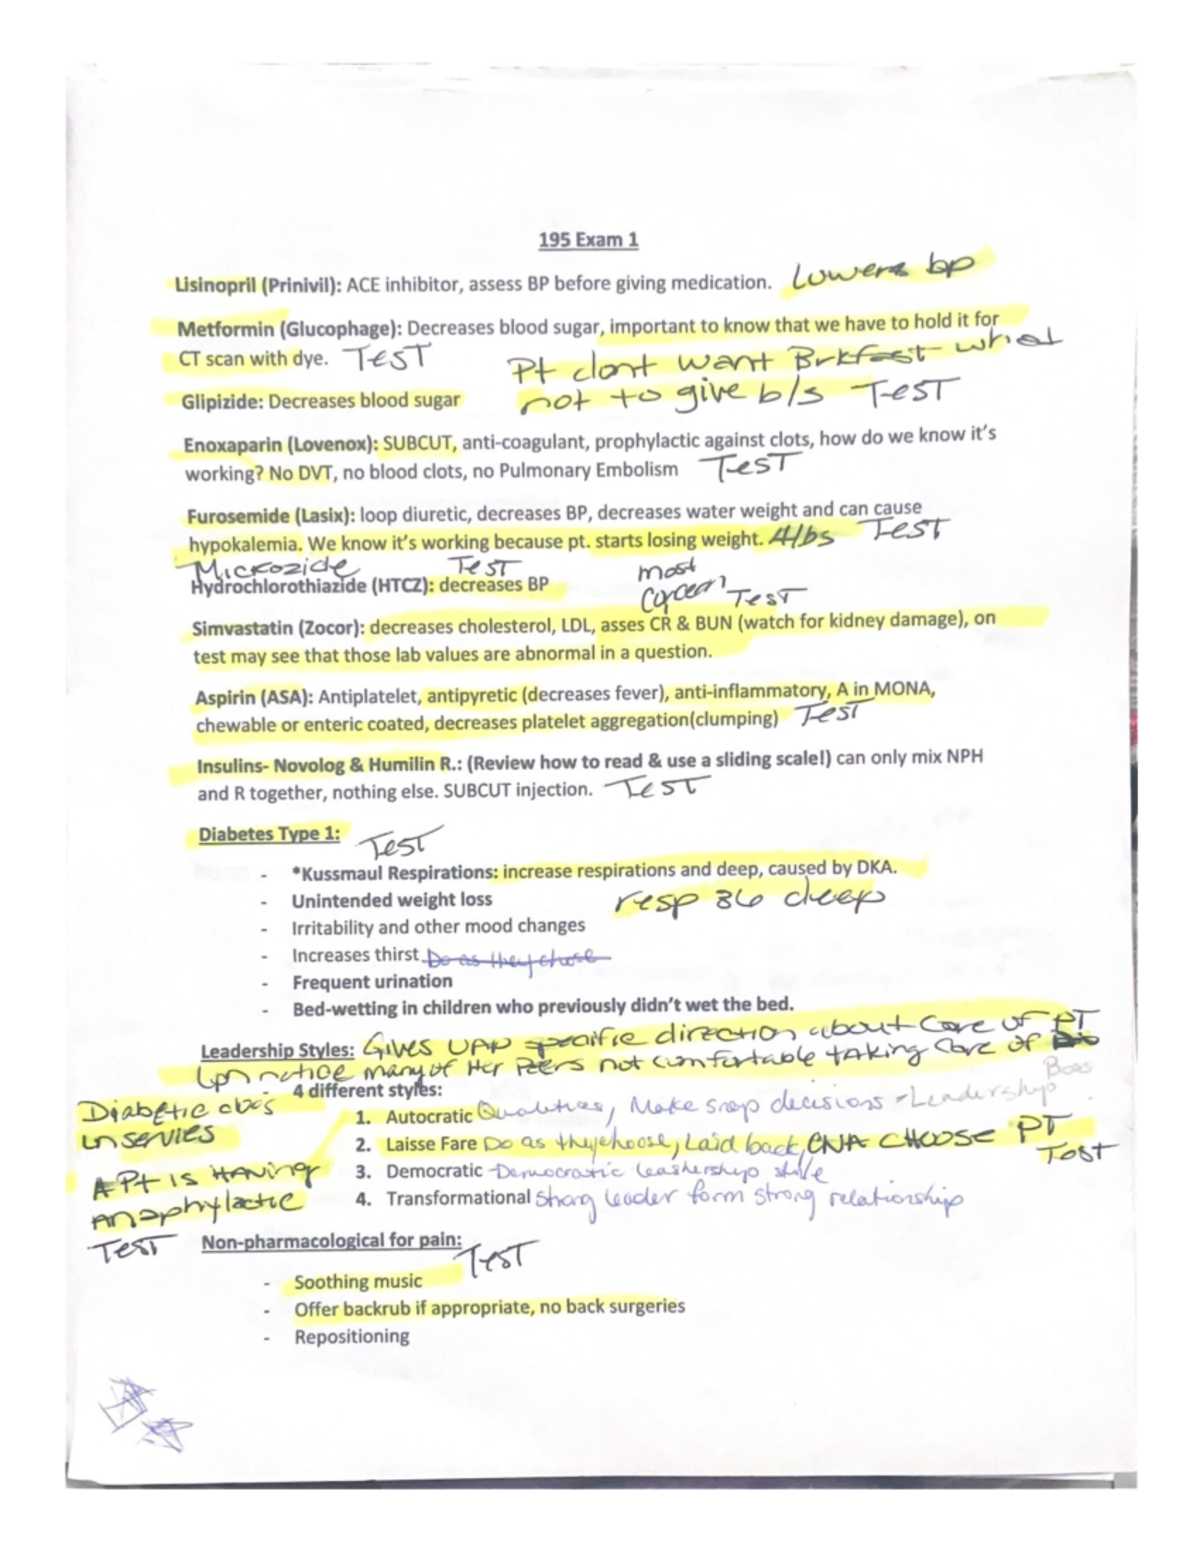 195 Exam 1
Lisinopril (Prinivil): ACE inhibitor, assess BP before giving medication. Lowers bp
Metformin (Glucophage): Decreases blood sugar, important to know that we have to hold it for
CT scan with dye. TEST
Pt dont want Brkfast what
not to give b/s TEST
Glipizide: Decreases blood sugar
Enoxaparin (Lovenox): SUBCUT, anti-coagulant, prophylactic against clots, how do we know it's
working? No DVT, no blood clots, no Pulmonary Embolism TEST
Furosemide (Lasix): loop diuretic, decreases BP, decreases water weight and can cause
hypokalemia. We know it's working because pt. starts losing weight. 4lbs TEST
Mickozide TEST most
Hydrochlorothiazide (HTCZ): decreases BP TEST
Simvastatin (Zocor): decreases cholesterol, LDL, asses CR & BUN (watch for kidney damage), on
test may see that those lab values are abnormal in a question.
Aspirin (ASA): Antiplatelet, antipyretic (decreases fever), anti-inflammatory, A in MONA,
chewable or enteric coated, decreases platelet aggregation(clumping) TEST
Insulins- Novolog & Humilin R.: (Review how to read & use a sliding scale!) can only mix NPH
and R together, nothing else. SUBCUT injection. TEST
Diabetes Type 1: TEST
- *Kussmaul Respirations: increase respirations and deep, caused by DKA.
- Unintended weight loss resp 36 deep
- Irritability and other mood changes
- Increases thirst Do as they chose
- Frequent urination
- Bed-wetting in children who previously didn't wet the bed.
Leadership Styles: Gives UAP specific direction about Care of PT
Lpn notice many of Her Peers not comfortable taking Care of
4 different styles: Boss
Diabetic
inservies
1. Autocratic Qualities, Make snap decisions - Leadership
2. Laisse Fare Do as they choose, Laid back, CNA CHOOSE PT TEST
3. Democratic Democratic leadership
4. Transformational Strong leader form strong relationship
A Pt IS HAVING
anaphylactic
TEST
Non-pharmacological for pain: TEST
- Soothing music
- Offer backrub if appropriate, no back surgeries
- Repositioning